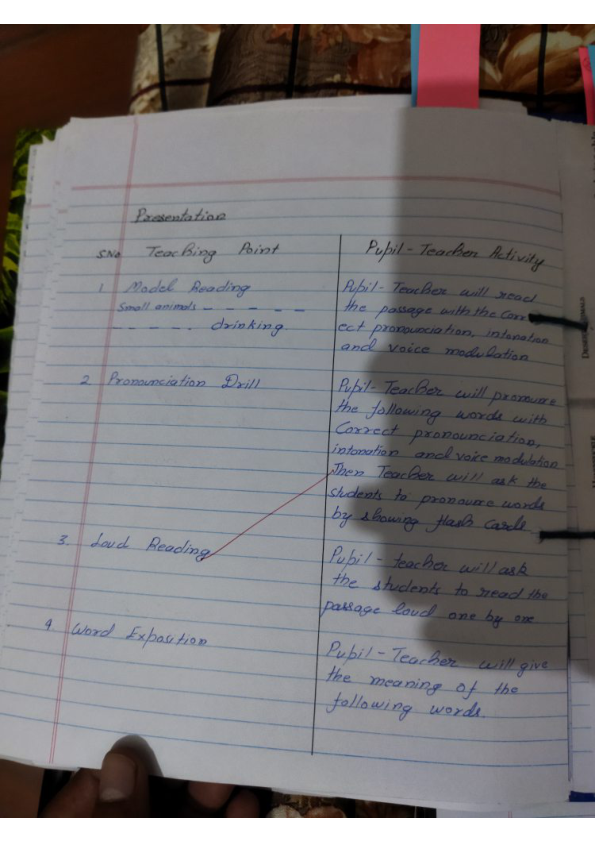 Presentation
S.No Teaching Point
Pupil-Teacher Activity
1 Model Reading
Small animals - - - - - -
- - - - - . drinking
Pupil-Teacher will read
the passage with the Corr
ect pronounciation, intonation
and voice modulation
2 Pronounciation Drill
Pupil-Teacher will pronounce
the following words with
Correct pronounciation,
intonation and voice modulation
Then Teacher will ask the
students to pronounce words
by showing flash Cards
3. Loud Reading
Pupil-teacher will ask
the students to read the
passage loud one by one
4. Word Exposition
Pupil-Teacher will give
the meaning of the
following words.